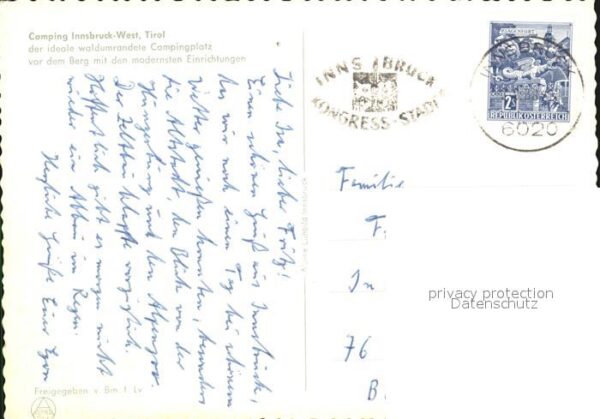 Camping Innsbruck-West, Tirol
der ideale waldumrandete Campingplatz
vor dem Berg mit den modernsten Einrichtungen
KLAGENFURT
2S
REPUBLIK ÖSTERREICH
INNSBRUCK
KONGRESS-STADT
INNSBRUCK
6020
Liebe liebe Fritz!
Einen schönen Gruß aus Innsbruck,
den wir noch einen Tag bei schönem
Wetter genießen konnten, besonders
die Altstadt, den Blick von der
Hungerburg und den Alpenzoo.
Der Zeltbau klappte vorzüglich.
Hoffentlich gibt es morgen nicht
wieder ein Abbau im Regen.
Herzliche Grüße Euer Egon
Familie
F.
In
76
B.
privacy protection
Datenschutz
Freigegeben v. Bm. f. Lv.